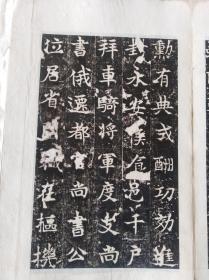 勳有典或酬功効進
封永安侯食邑千户
拜車騎將軍度支尚
書俄遷都官尚書公
位居省職在樞機